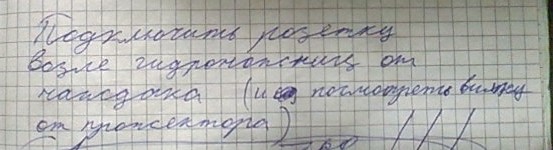 Подключить розетку
возле гидропонниц от
чатодака (и посмотреть вилку
от прожектора)